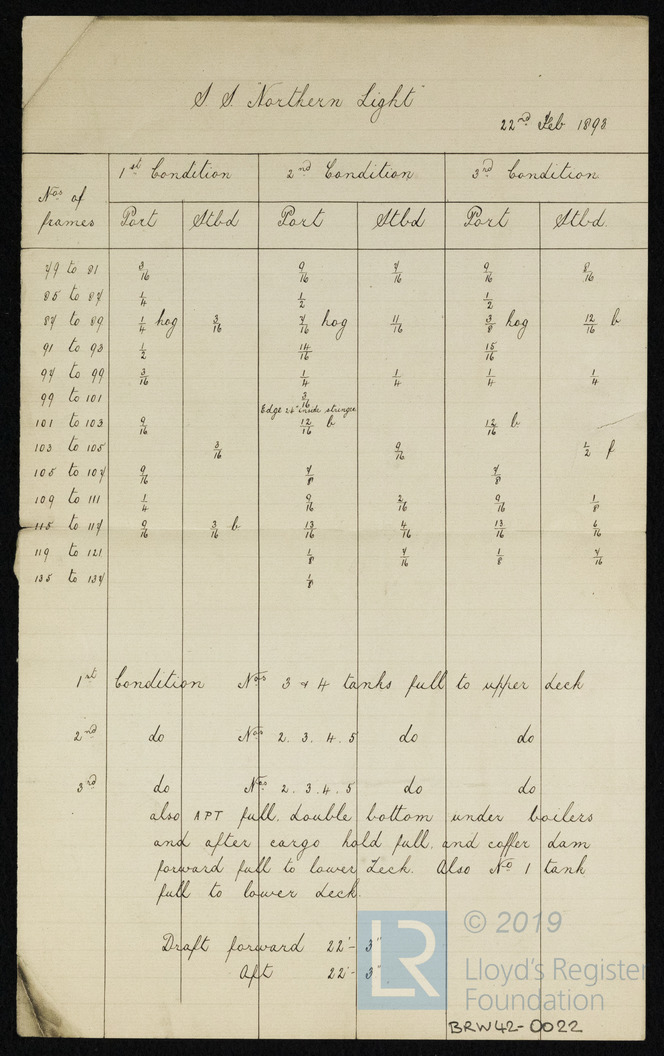 S. S. "Northern Light"
22nd Feb 1898
Nos of frames | 1st Condition | 2nd Condition | 3rd Condition
Port | Stbd | Port | Stbd | Port | Stbd.
79 to 81 | 3/16 | | 9/16 | 7/16 | 9/16 | 8/16
85 to 87 | 1/4 | | 1/2 | | 1/2 |
87 to 89 | 1/4 hog | 3/16 | 7/16 hog | 11/16 | 3/8 hog | 12/16 b
91 to 93 | 1/2 | | 14/16 | | 15/16 |
97 to 99 | 3/16 | | 1/4 | 1/4 | 1/4 | 1/4
99 to 101 | | | 3/16 | | |
Edge inside stringer
101 to 103 | 9/16 | | 12/16 b | | 12/16 b |
103 to 105 | | 3/16 | | 9/16 | | 1/2 f
105 to 107 | 9/16 | | 7/8 | | 7/8 |
109 to 111 | 1/4 | | 9/16 | 2/16 | 9/16 | 1/8
115 to 117 | 9/16 | 3/16 b | 13/16 | 4/16 | 13/16 | 6/16
119 to 121 | | | 1/8 | 7/16 | 1/8 | 7/16
135 to 137 | | | 1/8 | | |
1st Condition Nos 3 & 4 tanks full to upper deck
2nd do Nos 2. 3. 4. 5 do do
3rd do Nos 2. 3. 4. 5 do do
also APT full, double bottom under boilers
and after cargo hold full, and coffer dam
forward full to lower deck. Also No 1 tank
full to lower deck.
Draft forward 22'- 3"
Aft 22'- 3"
LR
© 2019
Lloyd's Register
Foundation
BRW42-0022